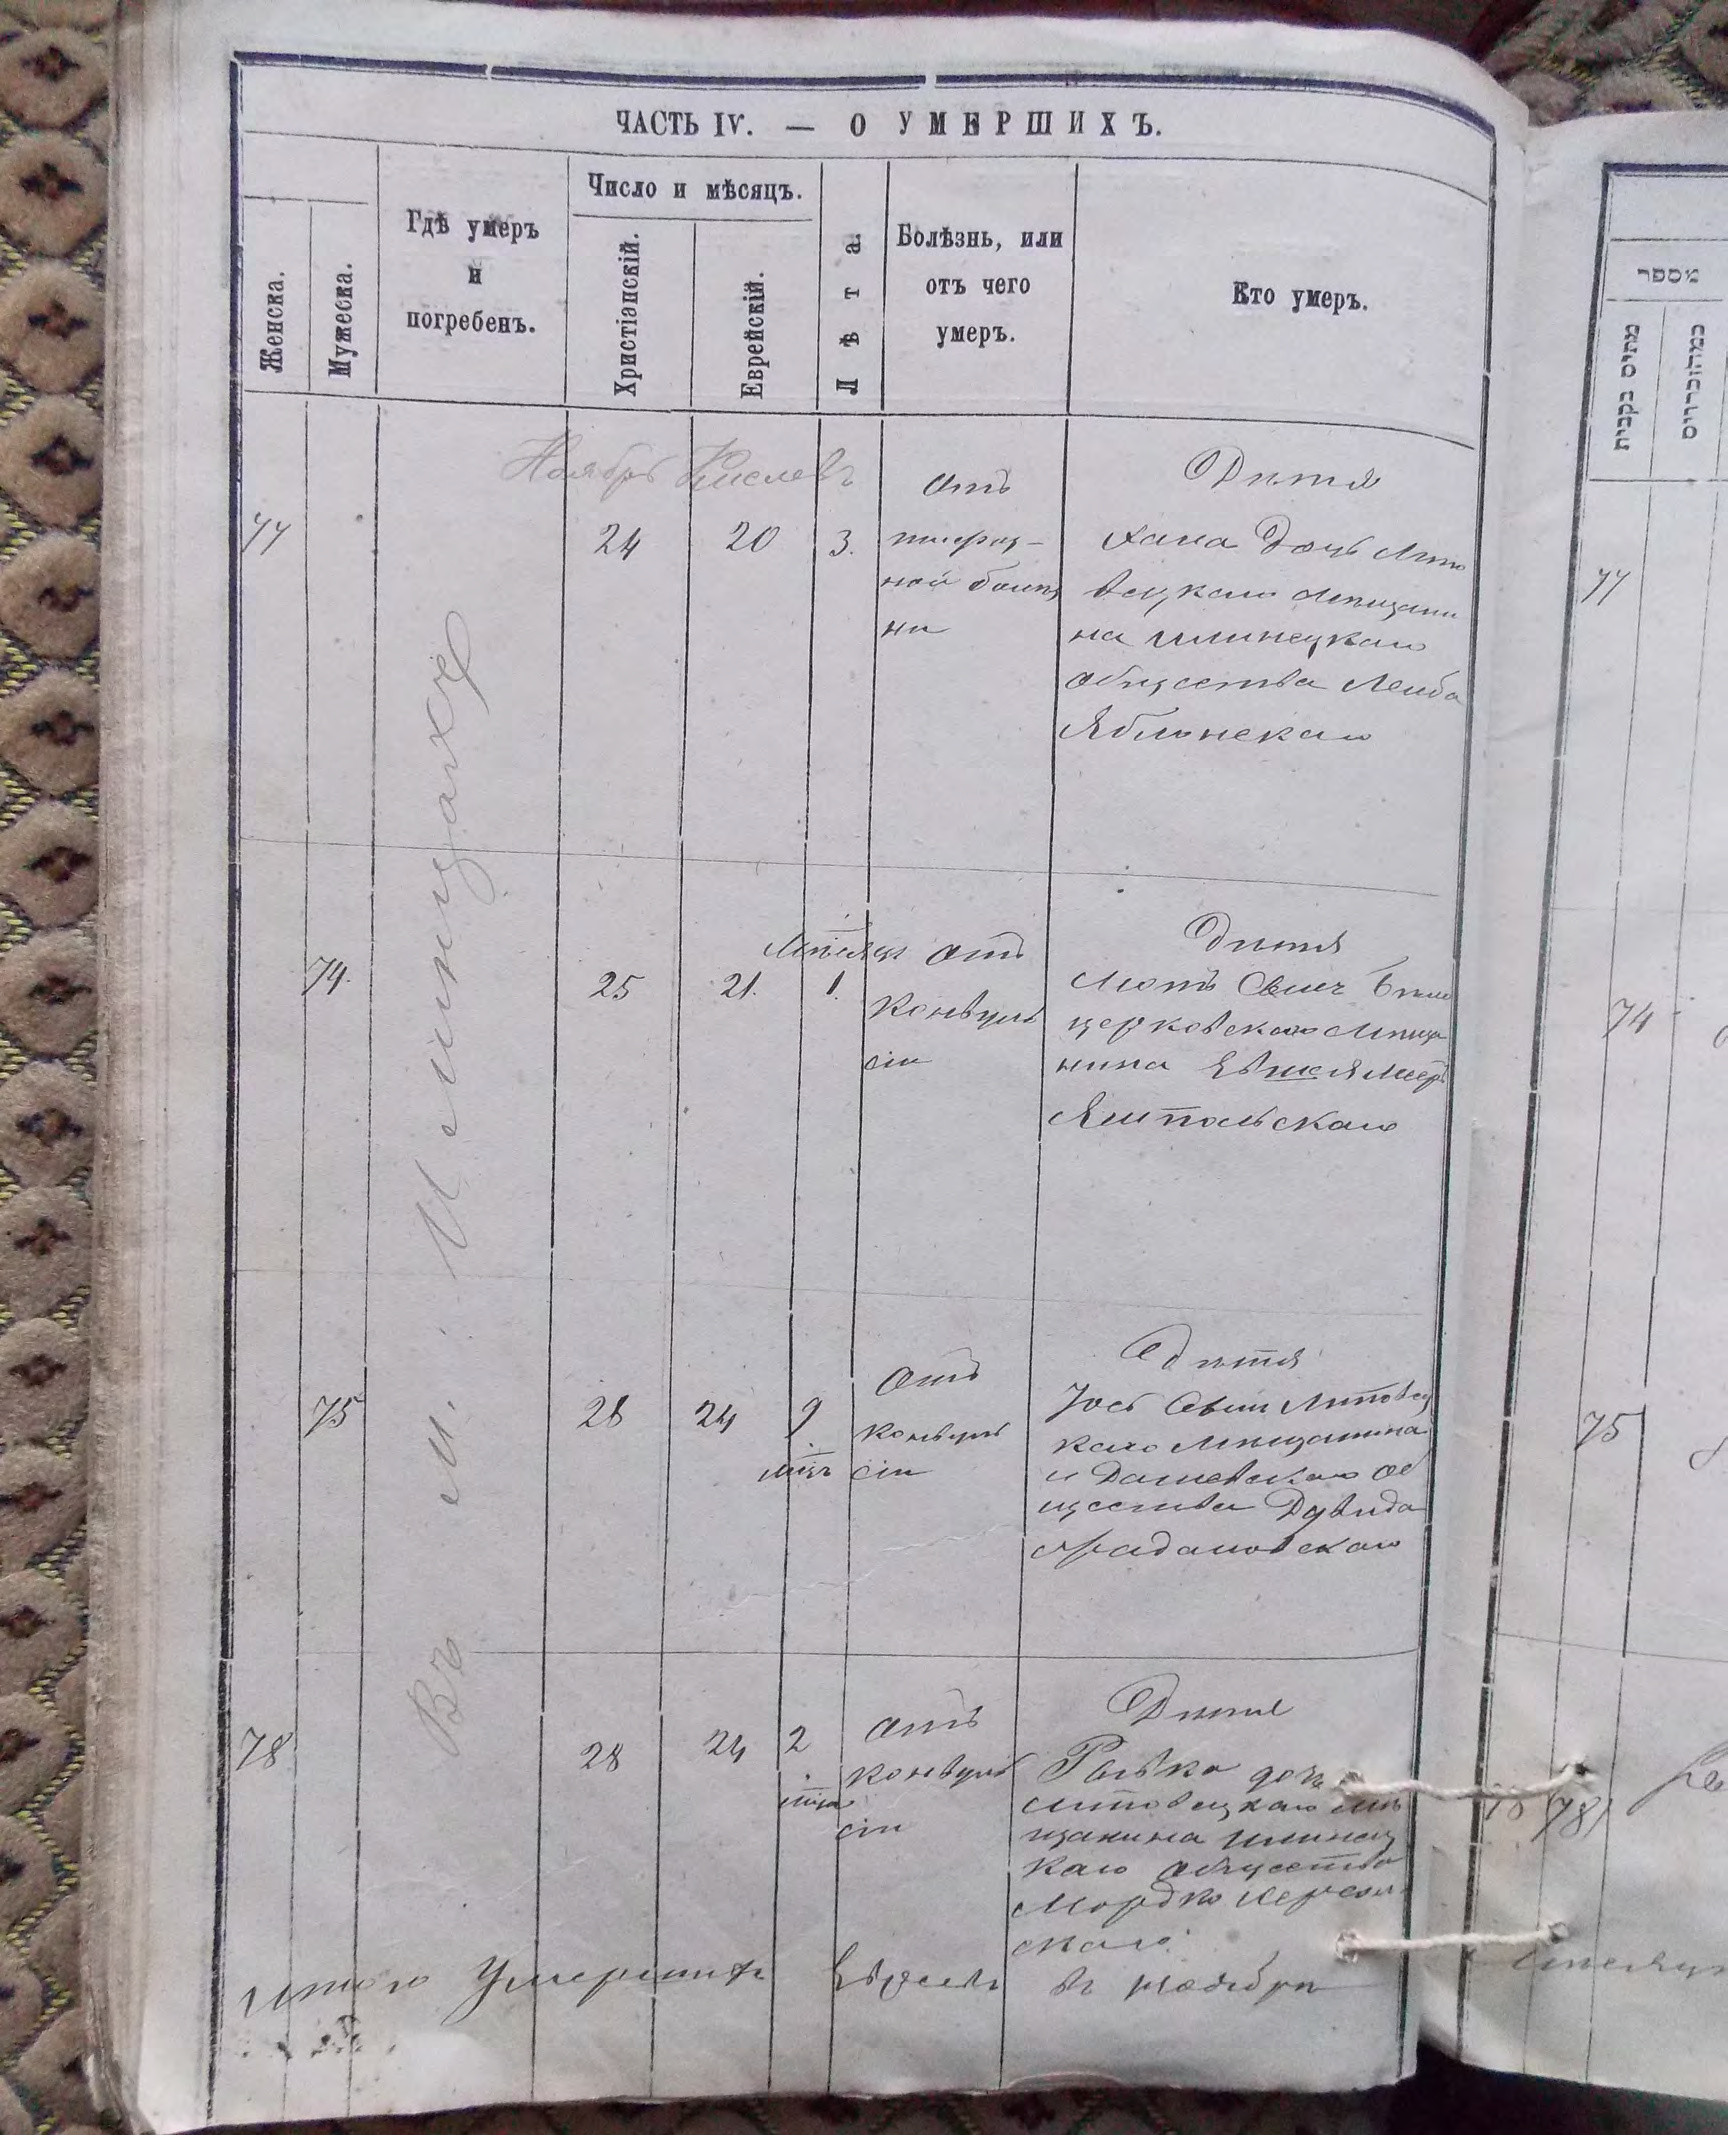 ЧАСТЬ IV. — О УМЕРШИХЪ.
Женска.
Мужеска.
Гдѣ умеръ
и
погребенъ.
Число и мѣсяцъ.
Христіанскій.
Еврейскій.
Лѣта.
Болѣзнь, или
отъ чего
умеръ.
Кто умеръ.
Ноябрь Кислевъ
Въ м. Илинцахъ
77
24
20
3.
отъ
ной
Дитя
Хана дочь Липо
вецкаго мѣщани
на Илинецкаго
общества Лейба
Яблонскаго
74.
25
21.
1.
отъ
конвуль
сіи
Дитя
Мотъ сынъ Бѣло
церковскаго мѣща
нина
Ямпольскаго
75
28
24
9
мцъ
отъ
конвуль
сіи
Дитя
Іось сынъ Липовец
каго мѣщанина
и Дашевскаго об
щества Дувида
78
28
24
2
мца
отъ
конвуль
сіи
Дитя
Рывка дочь
Липовецкаго мѣ
щанина Илинец
каго общества
Мордко Херсон
скаго
Итого умершихъ Евреевъ въ ноябрѣ
מספר
מתים
77
74
75
78